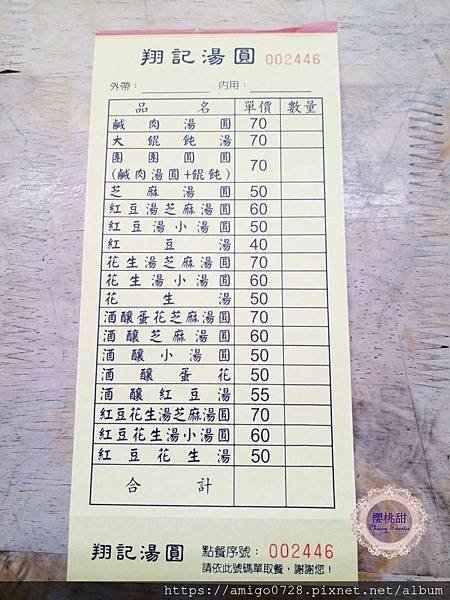 翔記湯圓 002446
外帶： 內用：
品名 單價 數量
鹹肉湯圓 70
大餛飩湯 70
團團圓圓
(鹹肉湯圓+餛飩) 70
芝麻湯圓 50
紅豆湯芝麻湯圓 60
紅豆湯小湯圓 50
紅豆湯 40
花生湯芝麻湯圓 70
花生湯小湯圓 60
花生湯 50
酒釀蛋花芝麻湯圓 70
酒釀芝麻湯圓 60
酒釀小湯圓 50
酒釀蛋花 50
酒釀紅豆湯 55
紅豆花生湯芝麻湯圓 70
紅豆花生湯小湯圓 60
紅豆花生湯 50
合計
翔記湯圓 點餐序號： 002446
請依此號碼單取餐，謝謝您！
櫻桃甜
https://amigo0728.pixnet.net/album